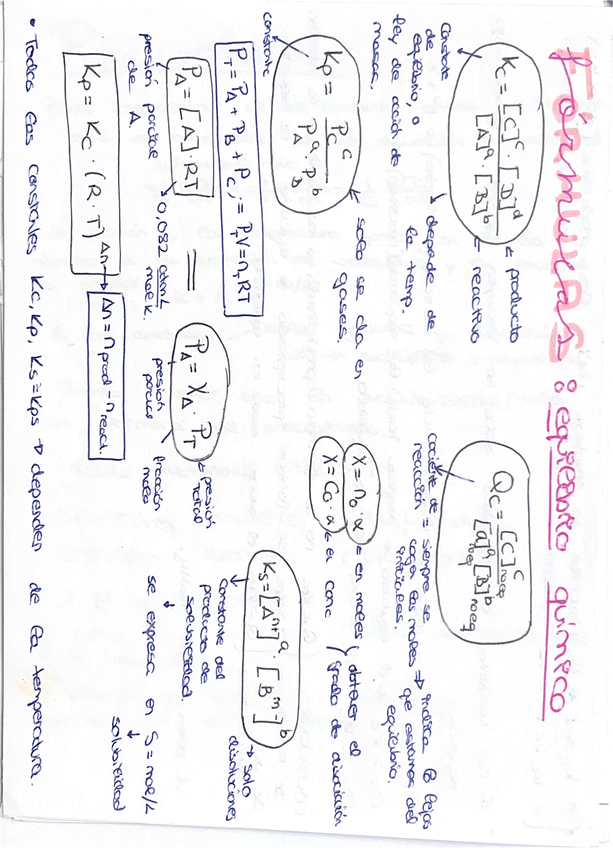 FÓRMULAS: equilibrio químico
Kc = [C]^c · [D]^d / [A]^a · [B]^b
→ producto
→ reactivo
Constante
de
equilibrio, o
ley de acción de
masas.
→ depende de
la temp.
Qc = [C]^c noeq / [a]^a noeq [B]^b noeq
cociente de
reacción = siempre se
coge las moles
iniciales.
⇒ indica lo lejos
que estamos del
equilibrio.
Kp = Pc^c / P_A^a · P_B^b
constante
→ solo se da en
gases.
X = n₀ · α ← en moles
X = C₀ · α ← el conc
obtener el
grado de disociación
P_T = P_A + P_B + P_C ; = P_T V = n_T RT
P_A = [A] · RT
→ 0,082 atm L / mol K.
presión parcial
de A.
P_A = X_A · P_T
← presión
total
presión
parcial
fracción
moles
Ks = [A^n+]^a · [B^m-]^b
→ solo
disoluciones
Constante del
producto de
solubilidad.
se expresa en S = mol/L
solubilidad
Kp = Kc · (R · T)^Δn
→ Δn = n prod - n react.
• Todas las constantes Kc, Kp, Ks = Kps → dependen de la temperatura.